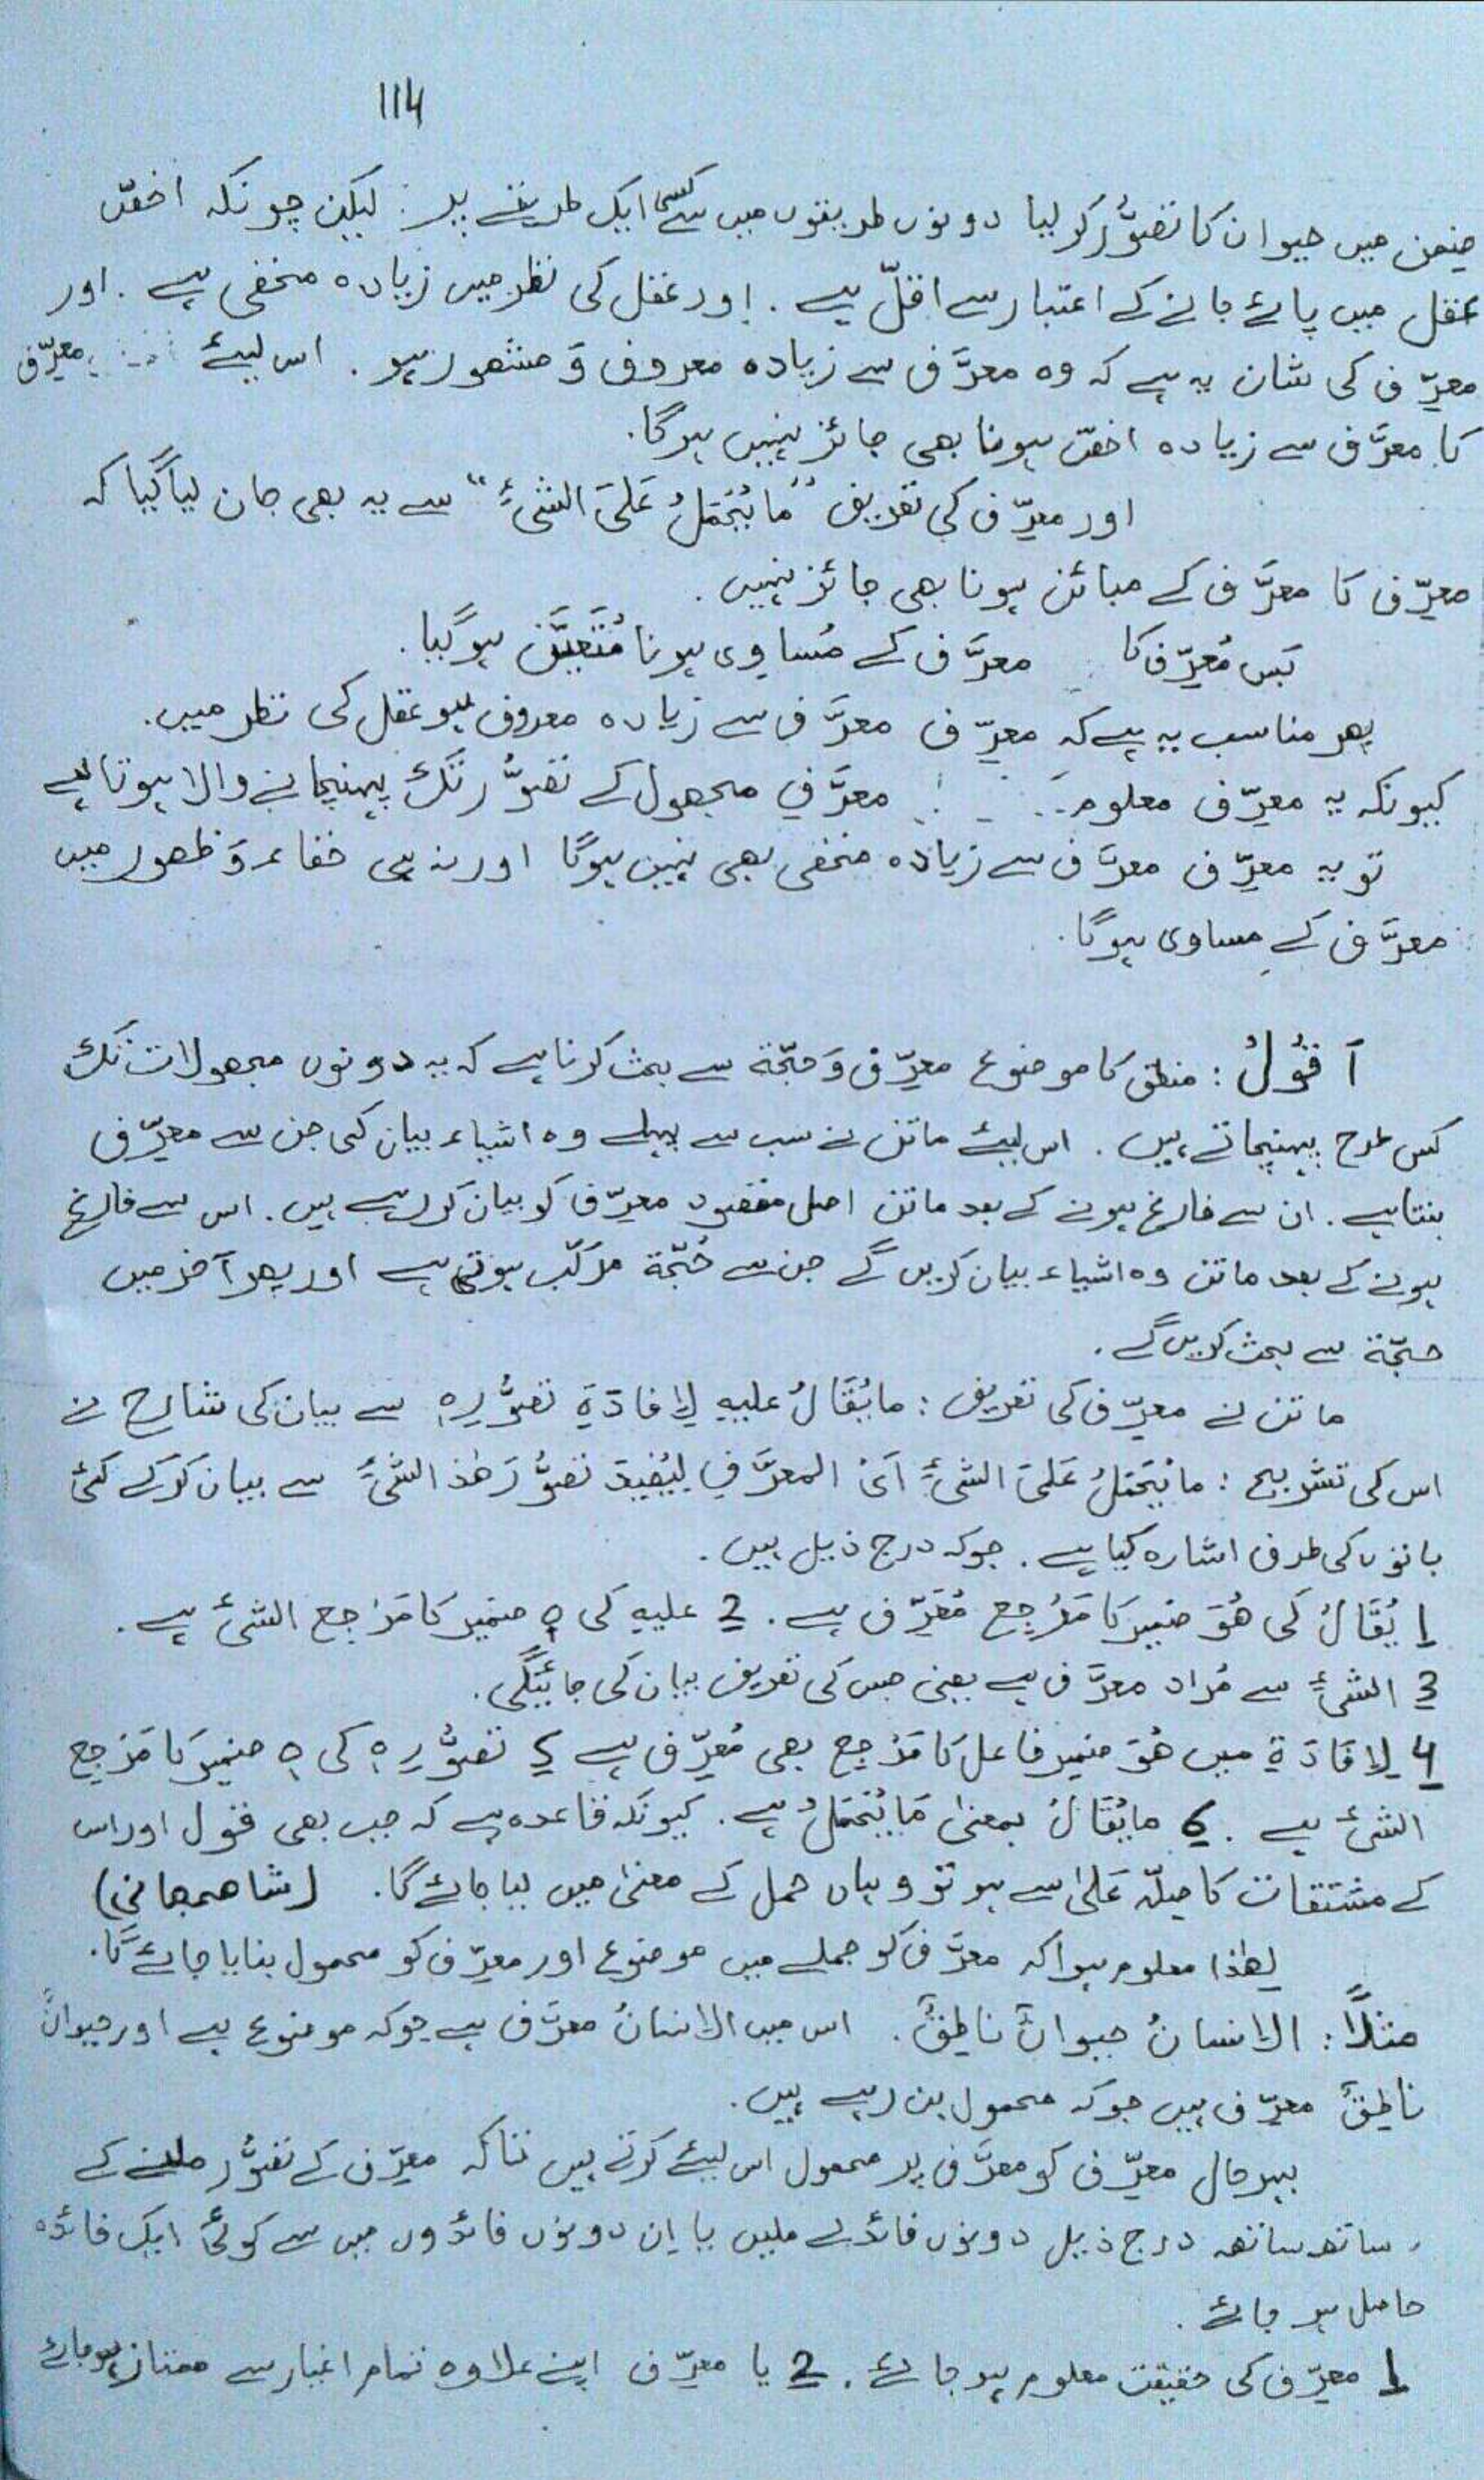 114
ضمن میں حیوان کا تصوُّر کر لیا دونوں طریقوں میں کسی ایک طریقے پر. لیکن چونکہ اخصّ
عقل میں پائے جانے کے اعتبار سے اقلّ ہے. اور عقل کی نظر میں زیادہ مخفی ہے. اور
معرِّف کی شان یہ ہے کہ وہ معرَّف سے زیادہ معروف وَ مشھور ہو. اس لیئے معرِّف
کا معرَّف سے زیادہ اخصّ ہونا بھی جائز نہیں ہوگا.
اور معرِّف کی تعریف "مَا یُحْمَلُ عَلیَ الشیٔ" سے یہ بھی جان لیا گیا کہ
معرِّف کا معرَّف کے مبائن ہونا بھی جائز نہیں.
پَس مُعرِّف کا معرَّف کے مُساوِی ہونا مُتَعیَّن ہو گیا.
پھر مناسب یہ ہے کہ معرِّف معرَّف سے زیادہ معروف ہو عقل کی نظر میں.
کیونکہ یہ معرِّف معلوم معرَّفِ مجھول کے تصوُّر تک پہنچانے والا ہوتا ہے
تو یہ معرِّف معرَّف سے زیادہ مخفی بھی نہیں ہوگا اور نہ ہی خفاء وَ ظھور میں
معرَّف کے مساوی ہوگا.
اَقُوْلُ: منطق کا موضوع معرِّف وَ حجّة سے بحث کرنا ہے کہ یہ دونوں مجھولات تک
کس طرح پہنچاتے ہیں. اس لیئے ماتن نے سب سے پہلے وہ اشیاء بیان کی جن سے معرِّف
بنتا ہے. ان سے فارغ ہونے کے بعد ماتن اصل مقصود معرِّف کو بیان کر رہے ہیں. اس سے فارغ
ہونے کے بعد ماتن وہ اشیاء بیان کریں گے جن سے حُجّة مرکّب ہوتی ہے اور پھر آخر میں
حجّة سے بحث کریں گے.
ماتن نے معرِّف کی تعریف: مایُقَالُ علیہِ لِاِفَادَةِ تَصَوُّرِہ سے بیان کی شارح نے
اس کی تشریح: مایُحْمَلُ عَلیَ الشیٔ اَیْ المعرَّفِ لِیُفِیدَ تصوُّرَ ھٰذ الشیٔ سے بیان کرکے کئی
باتوں کی طرف اشارہ کیا ہے. جو کہ درج ذیل ہیں.
1 یُقَالُ کی ھُوَ ضمیر کا مَرْجِع مُعَرِّف ہے. 2 علیہِ کی ہ ضمیر کا مَرْجِع الشیٔ ہے.
3 الشیٔ سے مُراد معرَّف ہے یعنی جس کی تعریف بیان کی جائیگی.
4 لِاِفَادَةِ میں ھُوَ ضمیر فاعل کا مَرْجِع بھی مُعرِّف ہے 5 تصوُّرِہ کی ہ ضمیر کا مَرْجِع
الشیٔ ہے. 6 مایُقَالُ بمعنیٰ مَایُحْمَلُ ہے. کیونکہ قاعدہ ہے کہ جب بھی قول اور اس
کے مشتقات کا صِلّہ عَلیٰ سے ہو تو وہاں حمل کے معنیٰ میں لیا جائے گا. (شاھجھانی)
لھٰذا معلوم ہوا کہ معرَّف کو جملے میں موضوع اور معرِّف کو محمول بنایا جائے گا.
مثلاً: الانسانُ حیوانٌ ناطِقٌ. اس میں الانسانُ معرَّف ہے جو کہ موضوع ہے اور حیوانٌ
ناطِقٌ معرِّف ہیں جو کہ محمول بن رہے ہیں.
بہرحال معرِّف کو معرَّف پر محمول اس لیئے کرتے ہیں تاکہ معرَّف کے تصوُّر ملنے کے
ساتھ ساتھ درج ذیل دونوں فائدے ملیں یا اِن دونوں فائدوں میں سے کوئی ایک فائدہ
حاصل ہو جائے.
1 معرَّف کی حقیقت معلوم ہو جائے. 2 یا معرَّف اپنے علاوہ تمام اغیار سے ممتاز ہو جائے